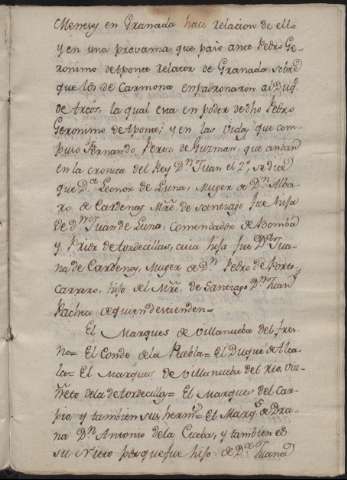 Meneses en Granada hace relacion de ello
y en una provanza que paso ante Pedro Ge-
ronimo de Aponte relator de Granada sobre
que los de Carmona empadronaron al Duq.
de Arcos, la qual era en poder de dho Pedro
Geronimo de Aponte; y en las Vidas que com-
puso Fernando Perez de Guzman, que andan
en la cronica del Rey Dn Juan el 2º, se dice
que Dª Leonor de Luna, Muger de Dn Alva-
ro de Cardenas Mre. de Santiago fue hija
de Dn Juan de Luna, Comendador de Bamba
y Prior de tordecillas, cuia hija fue Dª Jua-
na de Cardenas, Muger de Dn Pedro de Porto
Carrero, hijo del Mre. de Santiago Dn Juan
Pacheco de quien descienden=
El Marques de Villanueba del fres-
no= El Conde de la Puebla= El Duque de Alca-
la= El Marques de Villanueba del Rio, Viz-
de tordecillas= El Marques del Car-
pio y tambien sus herms. El Marqs. de
Dn Antonio de la Cueba, y tambien es
su Nieto porque fue hijo de Dª Juana